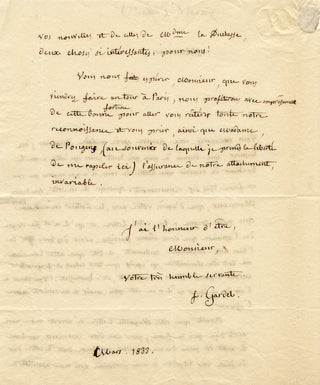 vos nouvelles et de celles de Mdme la Duchesse
deux choses si intéressantes, pour nous!
Vous nous fait espérer Monsieur, que vous
viendrez faire un tour à Paris, nous profiterons avec empressement
de cette bonne fortune pour aller vous réitérer toute notre
reconnoissance et vous prier, ainsi que Madame,
de Pougens (au souvenir de laquelle je prends la liberté
de me rapeller ici) l'assurance de notre attachement,
invariable.
J'ai l'honneur d'être,
Monsieur,
Votre très humble servante
f. Gardel.
Mars. 1833.